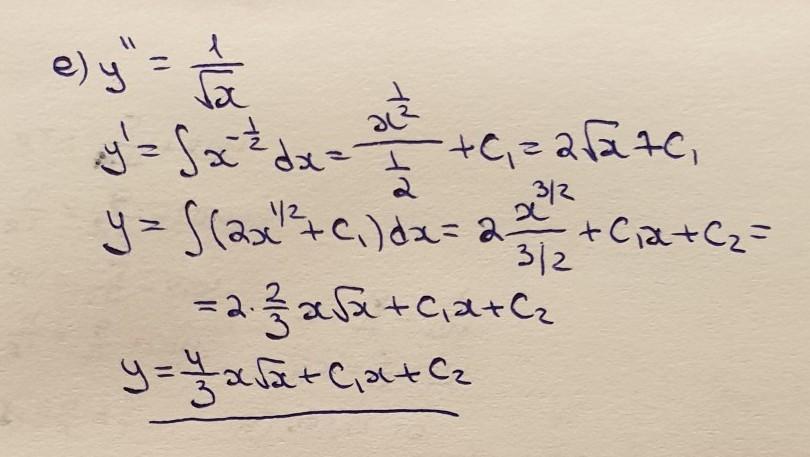 e) y'' = 1/√x
y' = ∫ x^(-1/2) dx = x^(1/2) / (1/2) + C₁ = 2√x + C₁
y = ∫ (2x^(1/2) + C₁) dx = 2 x^(3/2) / (3/2) + C₁x + C₂ =
= 2 · 2/3 x√x + C₁x + C₂
y = 4/3 x√x + C₁x + C₂